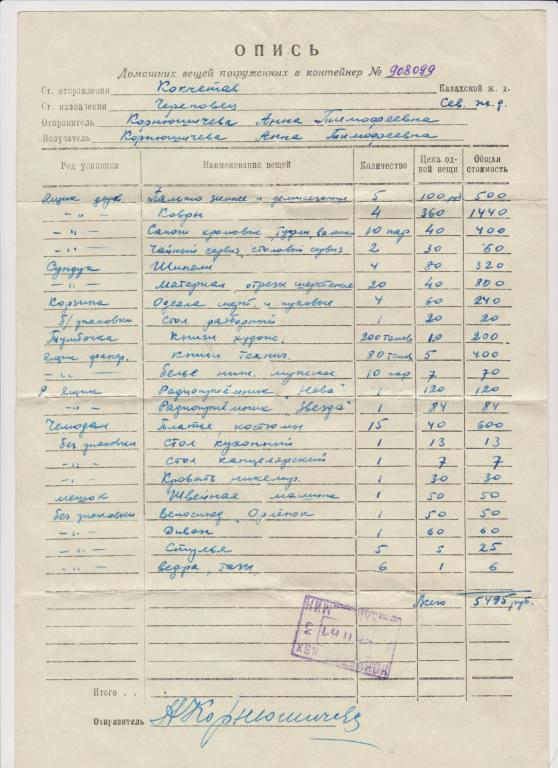 ОПИСЬ
Домашних вещей погруженных в контейнер № 908099
Ст. отправления Кокчетав Казахской ж. д.
Ст. назначения Череповец Сев. ж. д.
Отправитель Корнюшичева Анна Тимофеевна
Получатель Корнюшичева Анна Тимофеевна
Род упаковки Наименование вещей Количество Цена од- Общая
ной вещи стоимость
Ящик дерв. Пальто зимнее и демисезонное 5 100 руб 500
-"- Ковры 4 360 1440
-"- Сапоги хромовые, туфли 10 пар 40 400
-"- Чайный сервиз, столовый сервиз 2 30 60
Сундук Шинели 4 80 320
-"- Материал, отрезы шерстяные 20 40 800
Корзина Одеяла и пуховые 4 60 240
б/упаковки Стол разборный 1 20 20
Тумбочка Книги худож. 200 томов 1,0 200
Ящик фанер. Книги технич. 80 томов 5 400
-"- белье ниж. мужское 10 пар 7 70
Р Ящик Радиоприёмник "Нева" 1 120 120
-"- Радиоприёмник "Звезда" 1 84 84
Чемодан Платье костюмы 15 40 600
без упаковки Стол кухонный 1 13 13
-"- Стол канцелярский 1 7 7
-"- Кровать никелир. 1 30 30
мешок Швейная машина 1 50 50
без упаковки Велосипед "Орлёнок" 1 50 50
-"- Диван 1 60 60
-"- Стулья 5 5 25
-"- ведра, тазы, 6 1 6
Всего 5495 руб.
Итого . .
Отправитель АКорнюшичева